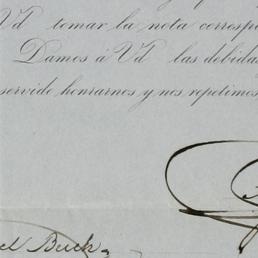 Vd tomar la nota correspo
Damos á Vd las debida
servido honrarnos y nos repetimos
el Buck